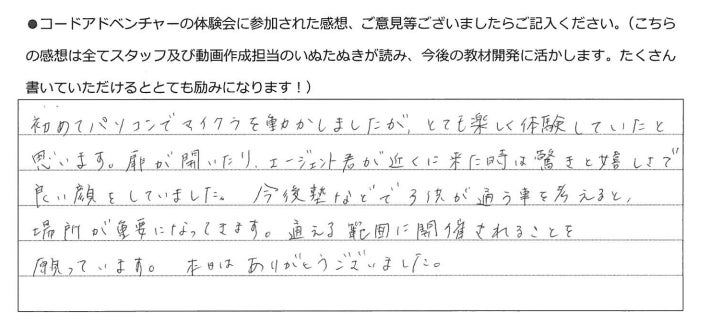 ●コードアドベンチャーの体験会に参加された感想、ご意見等ございましたらご記入ください。（こちら
の感想は全てスタッフ及び動画作成担当のいぬたぬきが読み、今後の教材開発に活かします。たくさん
書いていただけるととても励みになります！）
初めてパソコンでマイクラを動かしましたが、とても楽しく体験していたと
思います。扉が開いたり、エージェント君が近くに来た時は驚きと嬉しさで
良い顔をしていました。今後塾などで子供が通う事を考えると、
場所が重要になってきます。通える範囲に開催されることを
願っています。本日はありがとうございました。